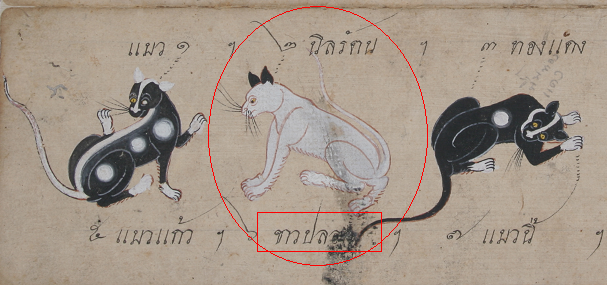 แมว ๑ ๆ ๒ นิลรัตน ๆ ๓ ทองแดง
๕ แมวแก้ว ๆ ขาวปล ๆ ๗ แมวนี้ ๆ